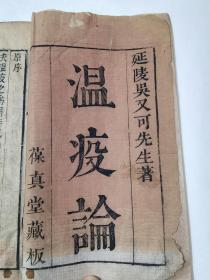 延陵吳又可先生著
温疫論
葆真堂藏板
原序